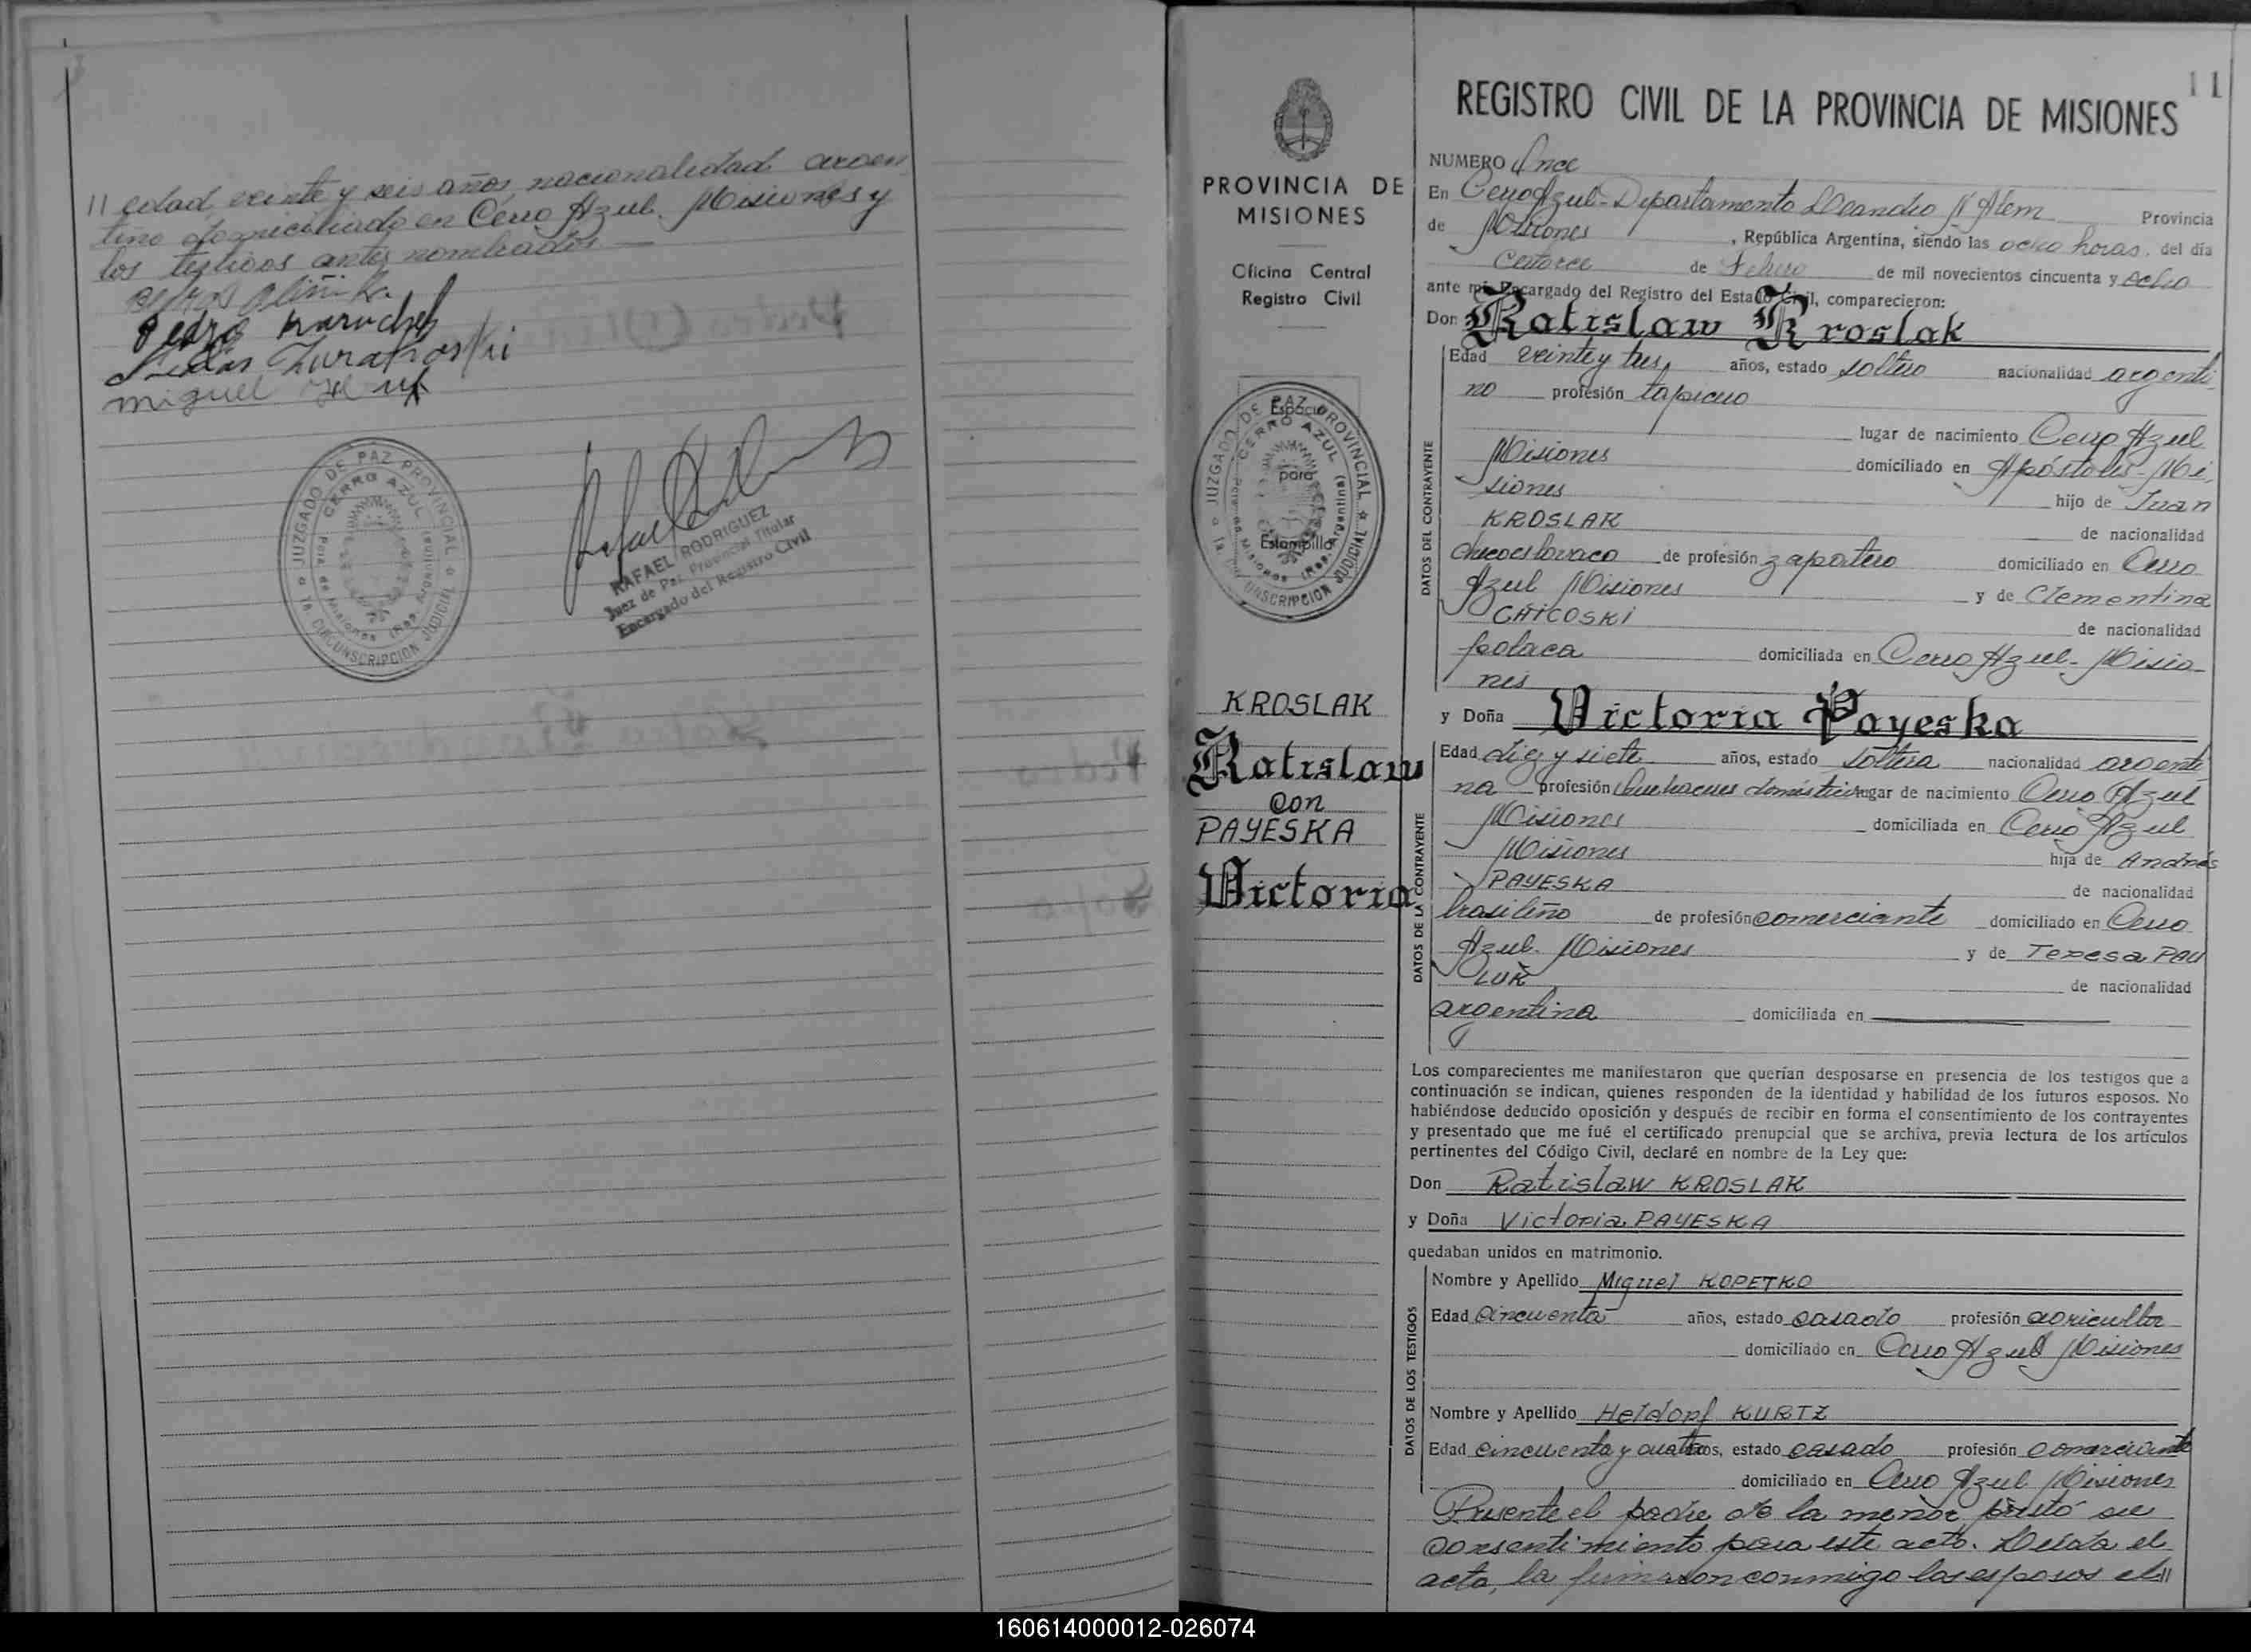 11 edad veinte y seis años, nacionalidad argen
tino domiciliado en Cerro Azul. Misiones y
los testigos antes nombrados
Pedro
miguel
JUZGADO DE PAZ PROVINCIAL
CERRO AZUL
Pcia. de Misiones (Rep. Argentina)
1a. CIRCUNSCRIPCION JUDICIAL
RAFAEL RODRIGUEZ
Juez de Paz Provincial Titular
Encargado del Registro Civil
11
REGISTRO CIVIL DE LA PROVINCIA DE MISIONES
PROVINCIA DE
MISIONES
Oficina Central
Registro Civil
Espacio
para
Estampilla
JUZGADO DE PAZ PROVINCIAL
CERRO AZUL
Pcia. de Misiones (Rep. Argentina)
1a. CIRCUNSCRIPCION JUDICIAL
KROSLAK
Ratislaw
con
PAYESKA
Victoria
NUMERO Once
En Cerro Azul- Departamento Leandro N Alem Provincia
de Misiones, República Argentina, siendo las ocho horas. del día
Catorce de Febrero de mil novecientos cincuenta y ocho
ante mi, Encargado del Registro del Estado Civil, comparecieron:
Don Ratislaw Kroslak
DATOS DEL CONTRAYENTE
Edad veinte y tres años, estado soltero nacionalidad argenti
no profesión tapicero
lugar de nacimiento Cerro Azul
Misiones domiciliado en Apóstoles- Mi
siones hijo de Juan
KROSLAK de nacionalidad
checoeslovaco de profesión zapatero domiciliado en Cerro
Azul Misiones y de Clementina
CHICOSKI de nacionalidad
polaca domiciliada en Cerro Azul- Misio-
nes
y Doña Victoria Payeska
DATOS DE LA CONTRAYENTE
Edad diez y siete años, estado soltera nacionalidad argenti
na profesión Quehaceres domésticos lugar de nacimiento Cerro Azul
Misiones domiciliada en Cerro Azul
Misiones hija de Andrés
PAYESKA de nacionalidad
brasileño de profesión comerciante domiciliado en Cerro
Azul. Misiones y de Teresa PAU
LUK de nacionalidad
argentina domiciliada en
Los comparecientes me manifestaron que querían desposarse en presencia de los testigos que a
continuación se indican, quienes responden de la identidad y habilidad de los futuros esposos. No
habiéndose deducido oposición y después de recibir en forma el consentimiento de los contrayentes
y presentado que me fué el certificado prenupcial que se archiva, previa lectura de los artículos
pertinentes del Código Civil, declaré en nombre de la Ley que:
Don Ratislaw KROSLAK
y Doña Victoria PAYESKA
quedaban unidos en matrimonio.
DATOS DE LOS TESTIGOS
Nombre y Apellido Miguel KOPETKO
Edad Cincuenta años, estado casado profesión agricultor
domiciliado en Cerro Azul Misiones
Nombre y Apellido Heldorf KURTZ
Edad cincuenta y cuatro años, estado casado profesión comerciante
domiciliado en Cerro Azul Misiones
Presente el padre de la menor prestó su
consentimiento para este acto. Leída el
acta, la firmaron conmigo los esposos el 11
160614000012-026074